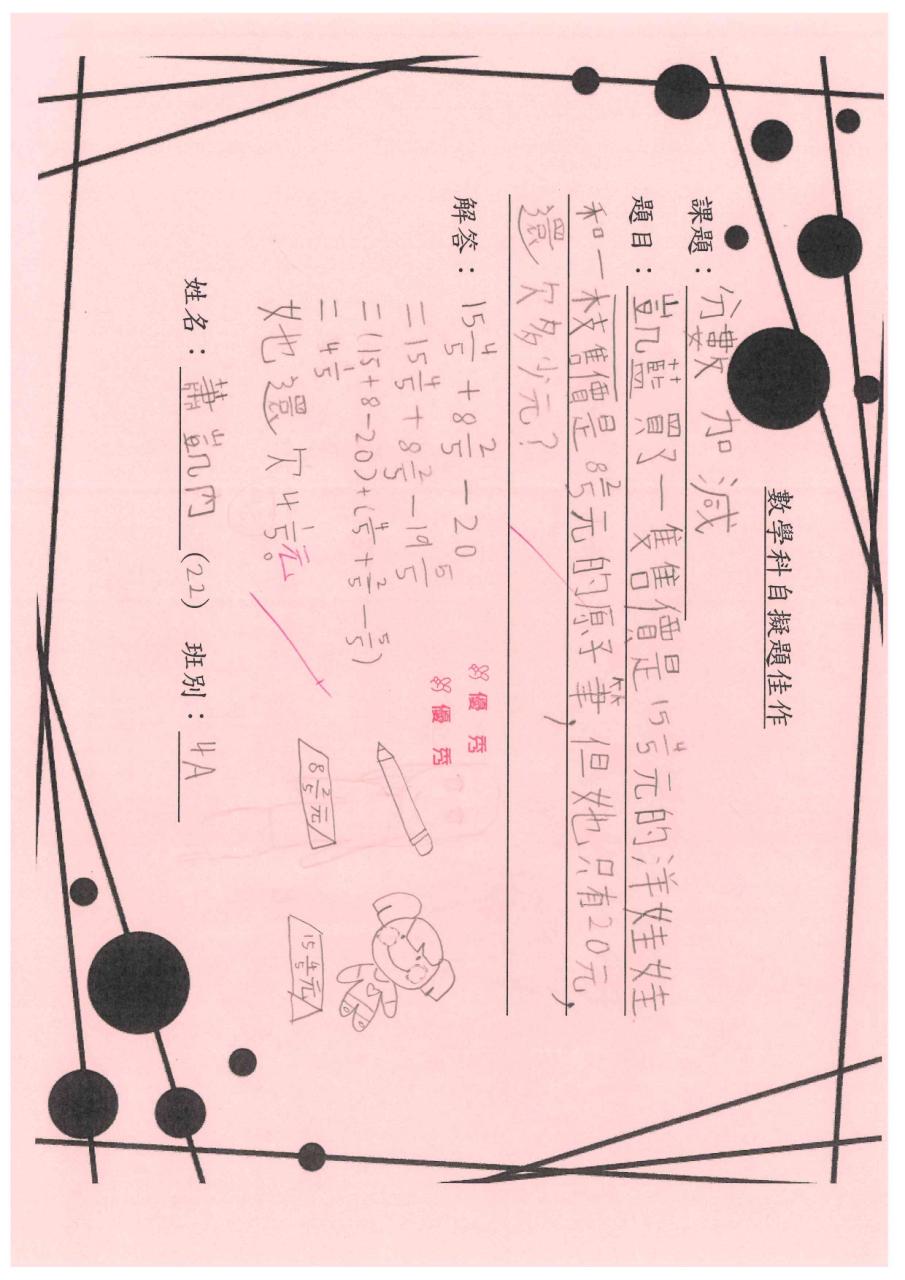 數學科自擬題佳作
課題：分數加減
題目：凱藍買了一隻售價是15 4/5元的洋娃娃
和一枝售價是8 2/5元的原子筆，但她只有20元，
還欠多少元？
解答：15 4/5 + 8 2/5 - 20
= 15 4/5 + 8 2/5 - 19 5/5
= (15+8-20)+(4/5 + 2/5 - 5/5)
= 4 1/5
她還欠4 1/5元。
優秀
優秀
8 2/5元
15 4/5元
姓名：蕭凱 (22) 班別：4A